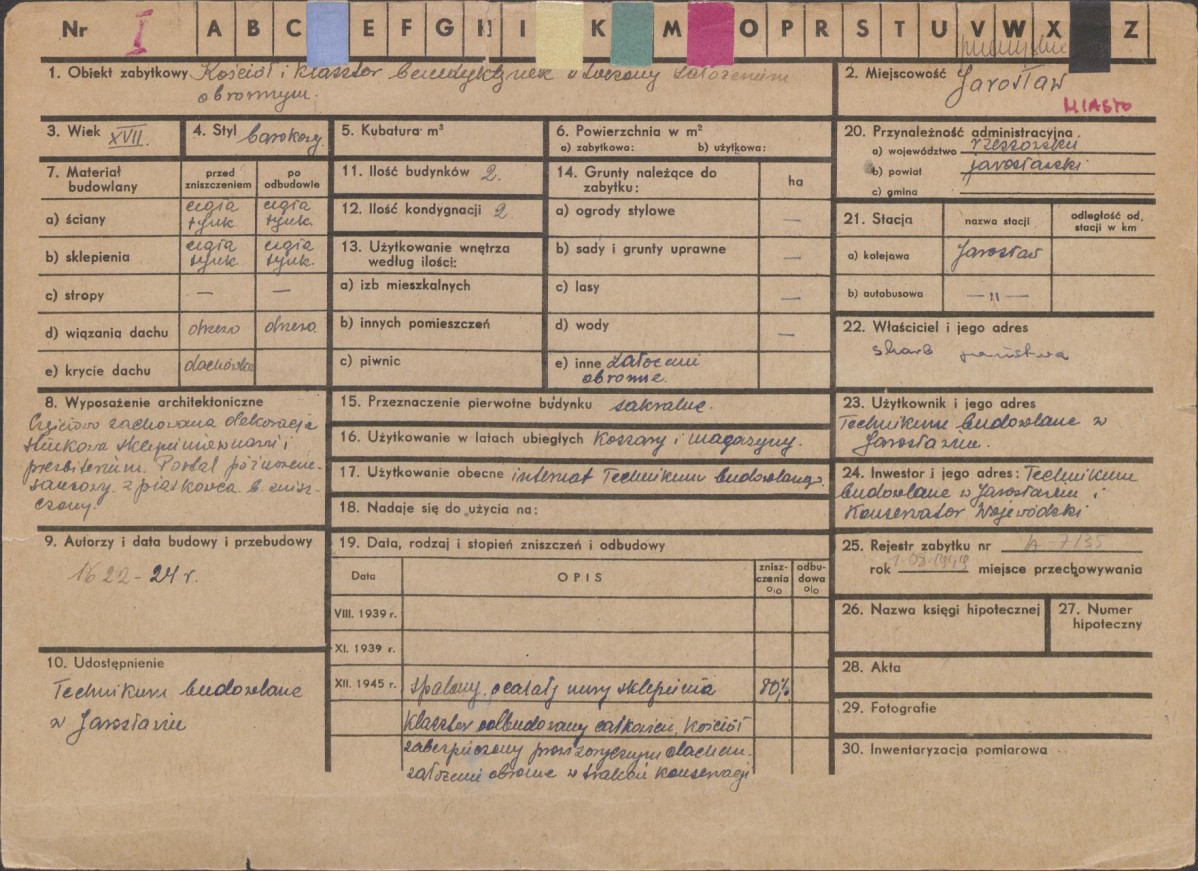 Nr I A B C E F G H I K M O P R S T U V W X Z
1. Obiekt zabytkowy Kościół i klasztor benedyktynek otoczony założeniem
obronnym.
2. Miejscowość Jarosław
MIASTO
3. Wiek XVII.
4. Styl barokowy
5. Kubatura m³
6. Powierzchnia w m²
a) zabytkowa: b) użytkowa:
7. Materiał
budowlany
przed
zniszczeniem
po
odbudowie
a) ściany
cegła
tynk.
cegła
tynk.
b) sklepienia
cegła
tynk.
cegła
tynk.
c) stropy — —
d) wiązania dachu drzewo drzewo
e) krycie dachu dachówka
8. Wyposażenie architektoniczne
Częściowo zachowana dekoracja
stiukowa sklepień nawy i
prezbiterium. Portal późnorene-
sansowy z piaskowca b. znisz-
czony.
9. Autorzy i data budowy i przebudowy
1622-24 r.
10. Udostępnienie
Technikum budowlane
w Jarosławiu
11. Ilość budynków 2.
12. Ilość kondygnacji 2
13. Użytkowanie wnętrza
według ilości:
a) izb mieszkalnych
b) innych pomieszczeń
c) piwnic
14. Grunty należące do
zabytku:
ha
a) ogrody stylowe —
b) sady i grunty uprawne —
c) lasy —
d) wody —
e) inne założenie
obronne.
15. Przeznaczenie pierwotne budynku sakralne.
16. Użytkowanie w latach ubiegłych koszary i magazyny.
17. Użytkowanie obecne internat Technikum budowlanego.
18. Nadaje się do użycia na:
19. Data, rodzaj i stopień zniszczeń i odbudowy
Data
OPIS
znisz-
czenia
%
odbu-
dowa
%
VIII. 1939 r.
XI. 1939 r.
XII. 1945 r. spalony, ocalały mury sklepienia 80%
Klasztor odbudowany całkowicie, Kościół
zabezpieczony prowizorycznym dachem.
założenie obronne w trakcie konserwacji
20. Przynależność administracyjna
a) województwo rzeszowskie
b) powiat jarosławski
c) gmina
21. Stacja
nazwa stacji
odległość od
stacji w km
a) kolejowa Jarosław
b) autobusowa —"—
22. Właściciel i jego adres
skarb państwa
23. Użytkownik i jego adres
Technikum budowlane w
Jarosławiu.
24. Inwestor i jego adres: Technikum
budowlane w Jarosławiu i
Konserwator Wojewódzki
25. Rejestr zabytku nr A-7/35
rok miejsce przechowywania
26. Nazwa księgi hipotecznej
27. Numer
hipoteczny
28. Akta
29. Fotografie
30. Inwentaryzacja pomiarowa